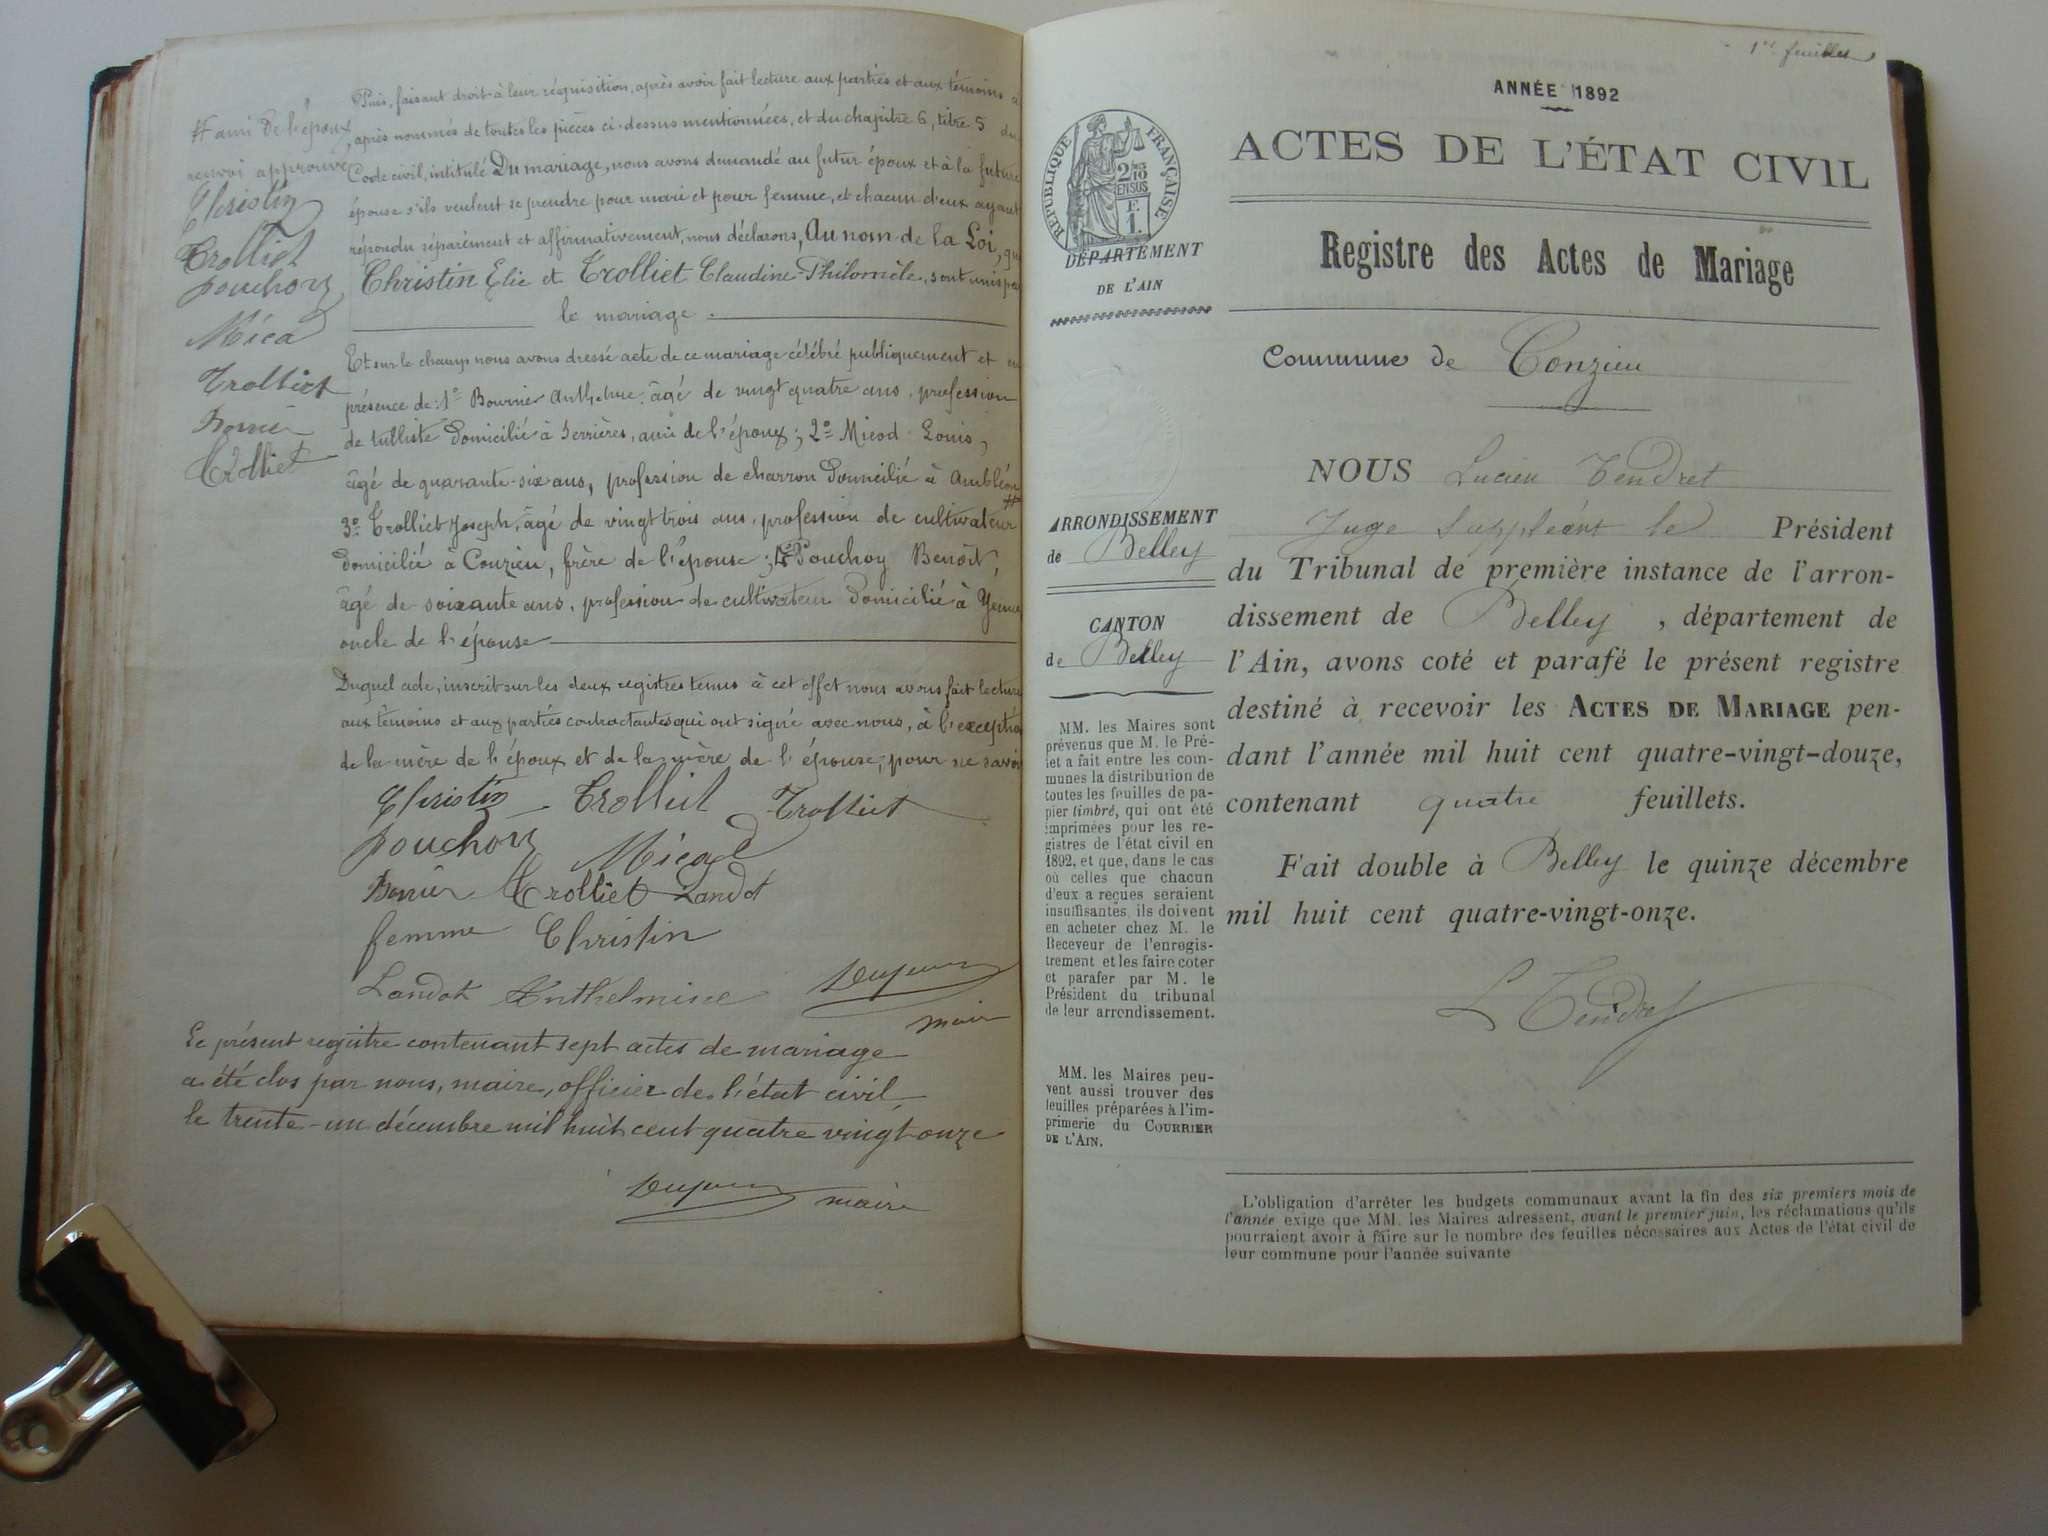 Puis, faisant droit à leur réquisition, après avoir fait lecture aux parties et aux témoins ci-
après nommés de toutes les pièces ci-dessus mentionnées, et du chapitre 6, titre 5 du
Code civil, intitulé Du mariage, nous avons demandé au futur époux et à la future
épouse s'ils veulent se prendre pour mari et pour femme, et chacun d'eux ayant
répondu séparément et affirmativement, nous déclarons, Au nom de la Loi, que
Christin Elie et Trolliet Claudine-Philomèle, sont unis par
le mariage.
Et sur le champ nous avons dressé acte de ce mariage célébré publiquement et en
présence de: 1° Bournier Anthelme, âgé de vingt quatre ans, profession
de tulliste domicilié à Serrières, ami de l'époux; 2° Micod Louis,
âgé de quarante-six ans, profession de charron domicilié à Ambléon #
3° Trolliet Joseph, âgé de vingt trois ans, profession de cultivateur
domicilié à Conzieu, frère de l'épouse; 4° Pouchoy Benoît,
âgé de soixante ans, profession de cultivateur domicilié à Yenne
oncle de l'épouse
Duquel acte, inscrit sur les deux registres tenus à cet effet nous avons fait lecture
aux témoins et aux parties contractantes qui ont signé avec nous, à l'exception
de la mère de l'époux et de la mère de l'épouse, pour ne savoir
Christin Trolliet Trolliet
Pouchoy Micod
Trolliet Landot
femme Christin
Landot Anthelmine
maire
# ami de l'époux
renvoi approuvé
Christin
Trolliet
Pouchoy
Micod
Trolliet
Trolliet
Le présent registre contenant sept actes de mariage
a été clos par nous, maire, officier de l'état civil,
le trente-un décembre mil huit cent quatre vingt onze
maire
1er feuillet
ANNÉE 1892
ACTES DE L'ÉTAT CIVIL
Registre des Actes de Mariage
RÉPUBLIQUE FRANÇAISE
2 2/10 EN SUS
F. 1.
DÉPARTEMENT
DE L'AIN
Commune de Conzieu
ARRONDISSEMENT
de Belley
CANTON
de Belley
MM. les Maires sont
prévenus que M. le Pré-
fet a fait entre les com-
munes la distribution de
toutes les feuilles de pa-
pier timbré, qui ont été
imprimées pour les re-
gistres de l'état civil en
1892, et que, dans le cas
où celles que chacun
d'eux a reçues seraient
insuffisantes, ils doivent
en acheter chez M. le
Receveur de l'enregis-
trement et les faire coter
et parafer par M. le
Président du tribunal
de leur arrondissement.
MM. les Maires peu-
vent aussi trouver des
feuilles préparées à l'im-
primerie du COURRIER
DE L'AIN.
NOUS Lucien Tendret
Juge Suppléant le Président
du Tribunal de première instance de l'arron-
dissement de Belley, département de
l'Ain, avons coté et parafé le présent registre
destiné à recevoir les ACTES DE MARIAGE pen-
dant l'année mil huit cent quatre-vingt-douze,
contenant quatre feuillets.
Fait double à Belley le quinze décembre
mil huit cent quatre-vingt-onze.
L Tendret
L'obligation d'arrêter les budgets communaux avant la fin des six premiers mois de
l'année exige que MM. les Maires adressent, avant le premier juin, les réclamations qu'ils
pourraient avoir à faire sur le nombre des feuilles nécessaires aux Actes de l'état civil de
leur commune pour l'année suivante